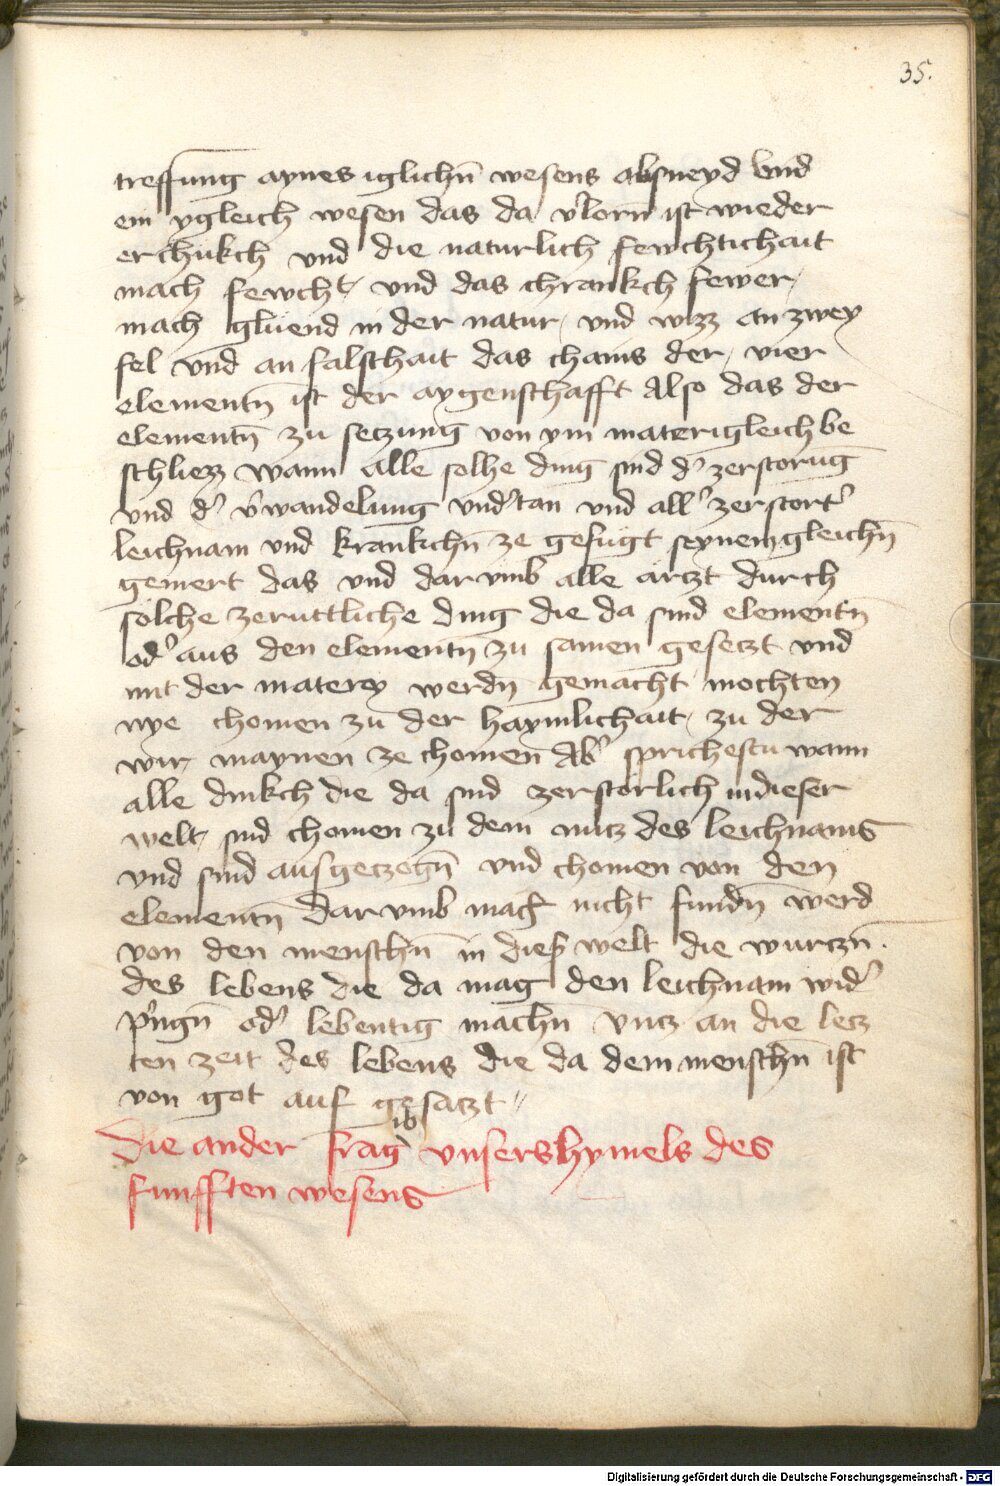 35.
treffung aynes iglichn̄ wesens absneyd vnd
ein ygleich wesen das da v̓lorn̄ ist wieder
erchukch vnd die naturlich fewchtichait
mach fewcht / vnd das chrankch fewer /
mach gluend in der natur / vnd wizz an zwey
fel vnd an falschait das chains der / vier
elementn̄ ist der aygenschafft Also das der
elementn̄ zu seczung von ym materigleich be
schliezz wann alle solhe ding sind d̓ zerstorūg
vnd d̓ v̓wandelung vnd̓tan vnd all̓ zerstort̓
leichnam vnd krankchn̄ ze gefugt seynem gleichn̄
gemert das vnd dar vmb alle arczt durch
solche zeruttliche ding die da sind elementn̄
od̓ aus den elementn̄ zu samen geseczt vnd
mit der materey werdn̄ gemacht mochten
nye chomen zu der haymlichait / zu der
wir maynen ze chomen Ab̓ sprichestu wann
alle dinkch die da sind zerstorlich in dieser
welt / sind chomen zu dem nucz des leichnams
vnd sind ausgeczogn̄ vnd chomen von den
elementn̄ Dar vmb mag nicht fundn̄ werd
von den menschn̄ in dies̓ welt die wurczn̄ .
des lebens die da mag den leichnam wid̓
p̓ngn̄ od̓ lebentig machn̄ vncz an die lecz
ten zeit des lebens die da dem menschn̄ ist
von got auf gesaczt //
ib
Die ander frag vnsers hymels des
funfften wesens
Digitalisierung gefördert durch die Deutsche Forschungsgemeinschaft - DFG